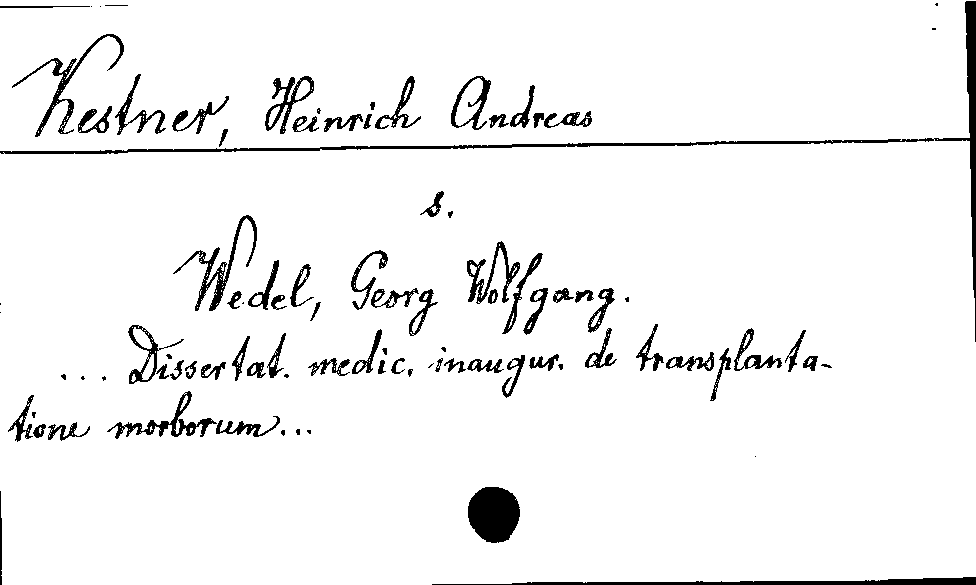 Kestner, Heinrich Andreas
s.
Wedel, Georg Wolfgang.
... Dissertat. medic. inaugur. de transplanta-
tione morborum...